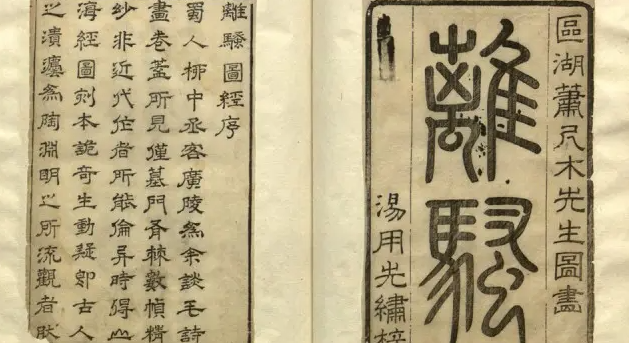 區湖蕭尺木先生圖畫
離騷
湯用先繡梓
離騷圖經序
蜀人柳中丞客廣陵為余談毛詩
畫卷蓋所見僅墓門斧棘數幀精
玅非近代作者所能倫异時得山
海經圖刻本詭奇生動疑卽古人
之為陶淵明之所流觀者肰